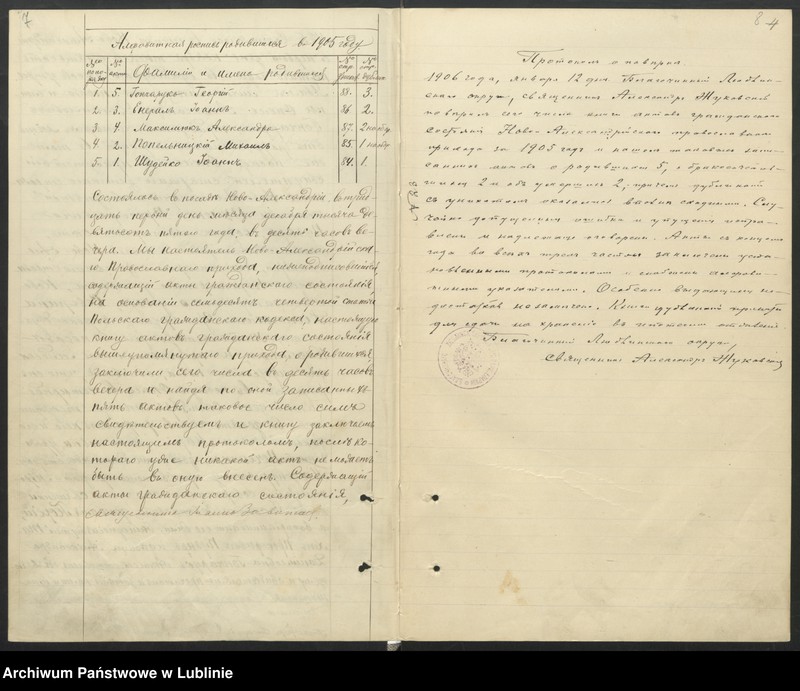 7
Алфавитная роспись родившихся в 1905 году
№ по по- рядку № актов Фамилии и имена родившихся № стр. № стр. дубл.
1. 5. Гончарукъ Георгій 88. 3.
2. 3. Іоаннъ 86. 2.
3. 4. Максимюкъ Александра 87. 2 на обор.
4. 2. Попельницкій Михаилъ 85. 1 на обор.
5. 1. Шудейко Іоаннъ 84. 1.
Состоялось въ посадѣ Ново-Александріи, въ тридцать первый день мѣсяца декабря тысяча де-
вятьсотъ пятого года, въ десять часовъ ве-
чера. Мы настоятель Ново-Александрійска-
го Православнаго прихода, нижеподписавшійся,
содержащій акты гражданскаго состоянія
на основаніи семьдесятъ четвертой статьи
Польскаго гражданскаго кодекса, настоящую
книгу актовъ гражданскаго состоянія
вышеупомянутаго прихода, о родившихся,
заключили сего числа въ десять часовъ
вечера и найдя по оной записанныхъ
пять актовъ, таковое число симъ
свидѣтельствуемъ и книгу заключаемъ
настоящимъ протоколомъ, послѣ ко-
тораго уже никакой актъ не можетъ
быть въ оную внесенъ. Содержащій
акты гражданскаго состоянія,
8 4
Протоколъ о повѣркѣ
1906 года, января 12 дня. Благочинный Люблин-
скаго округа, священникъ Александръ Жуковскій
повѣрилъ сего числа книги актовъ гражданскаго
состоянія Ново-Александрійскаго православнаго
прихода за 1905 годъ и нашелъ таковыхъ запи-
санныхъ актовъ о родившихся 5, о бракосочетав-
шихся 2 и объ умершихъ 2, причемъ дубликатъ
съ уникатомъ оказался вполнѣ сходнымъ. Слу-
чайно допущенныя ошибки и упущенія исправ-
лены и надлежаще оговорены. Акты съ концомъ
года во всѣхъ трехъ частяхъ заключены уста-
новленными протоколами и снабжены алфавит-
ными указателями. Особенно выдающихся не-
достатковъ не замѣчено. Книга дубликатъ
для сдачи на храненіе въ ипотечное отдѣленіе.
Благочинный Люблинскаго округа,
Священникъ Александръ Жуковскій
Archiwum Państwowe w Lublinie